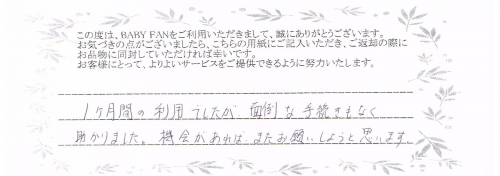 この度は、BABY FANをご利用いただきまして、誠にありがとうございます。
お気づきの点がございましたら、こちらの用紙にご記入いただき、ご返却の際に
お品物に同封していただければ幸いです。
お客様にとって、よりよいサービスをご提供できるように努力いたします。
1ヶ月間の利用でしたが、面倒な手続きもなく
助かりました。機会があれば、またお願いしようと思います。